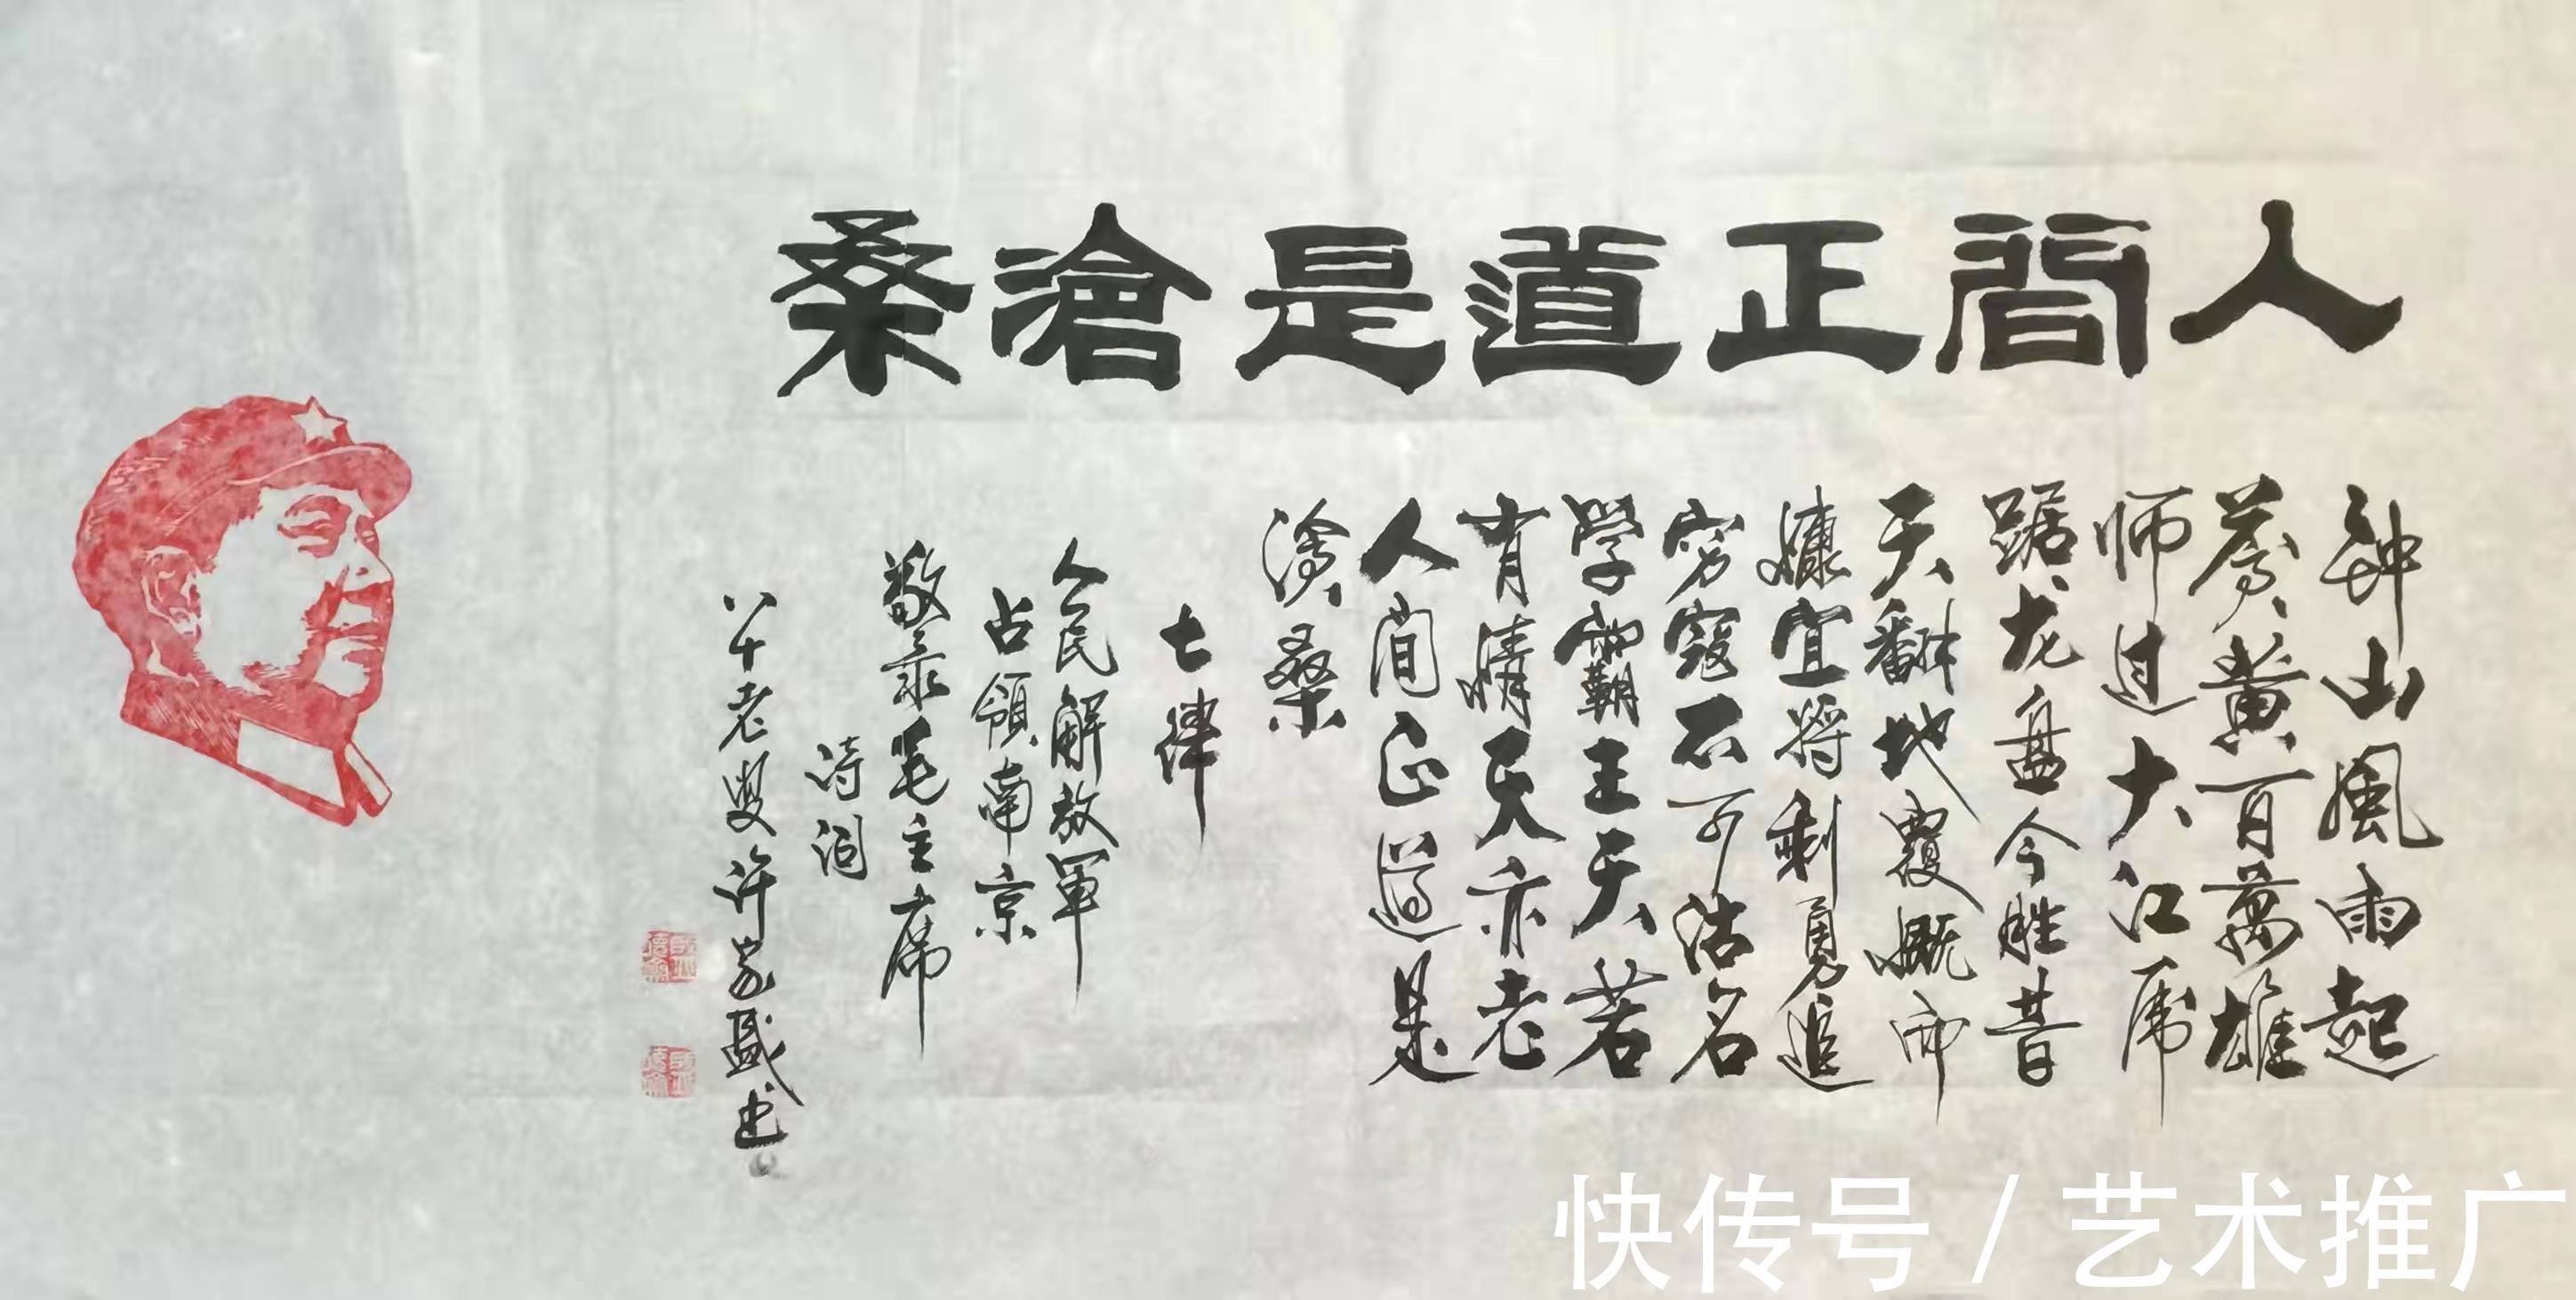 人間正道是滄桑
钟山風雨起
蒼黄百萬雄
师过大江虎
踞龙盘今胜昔
天翻地覆慨而
慷宜将剩勇追
穷寇不可沽名
學霸王天若
有情天亦老
人间正道是
滄桑
七律
人民解放軍
占領南京
敬录毛主席
诗词
八十老叟许家盛书
快传号 / 艺术推广